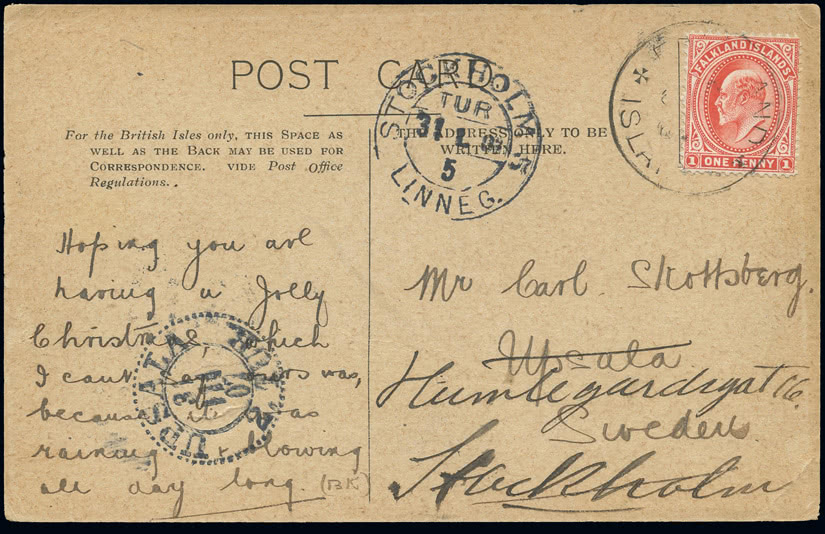 POST CARD
For the British Isles only, THIS SPACE AS
WELL AS THE BACK MAY BE USED FOR
CORRESPONDENCE. VIDE Post Office
Regulations..
THE ADDRESS ONLY TO BE
WRITTEN HERE.
STOCKHOLM
TUR
31
5
LINNEG.
FALKLAND ISLANDS
1 ONE PENNY 1
Hoping you are
having a Jolly
Christmas, which
I can't say ours was,
because it was
raining & blowing
all day long. (BK)
UPSALA
Mr Carl Skottsberg.
Upsala
Humlegårdsgat 16.
Sweden
Stockholm